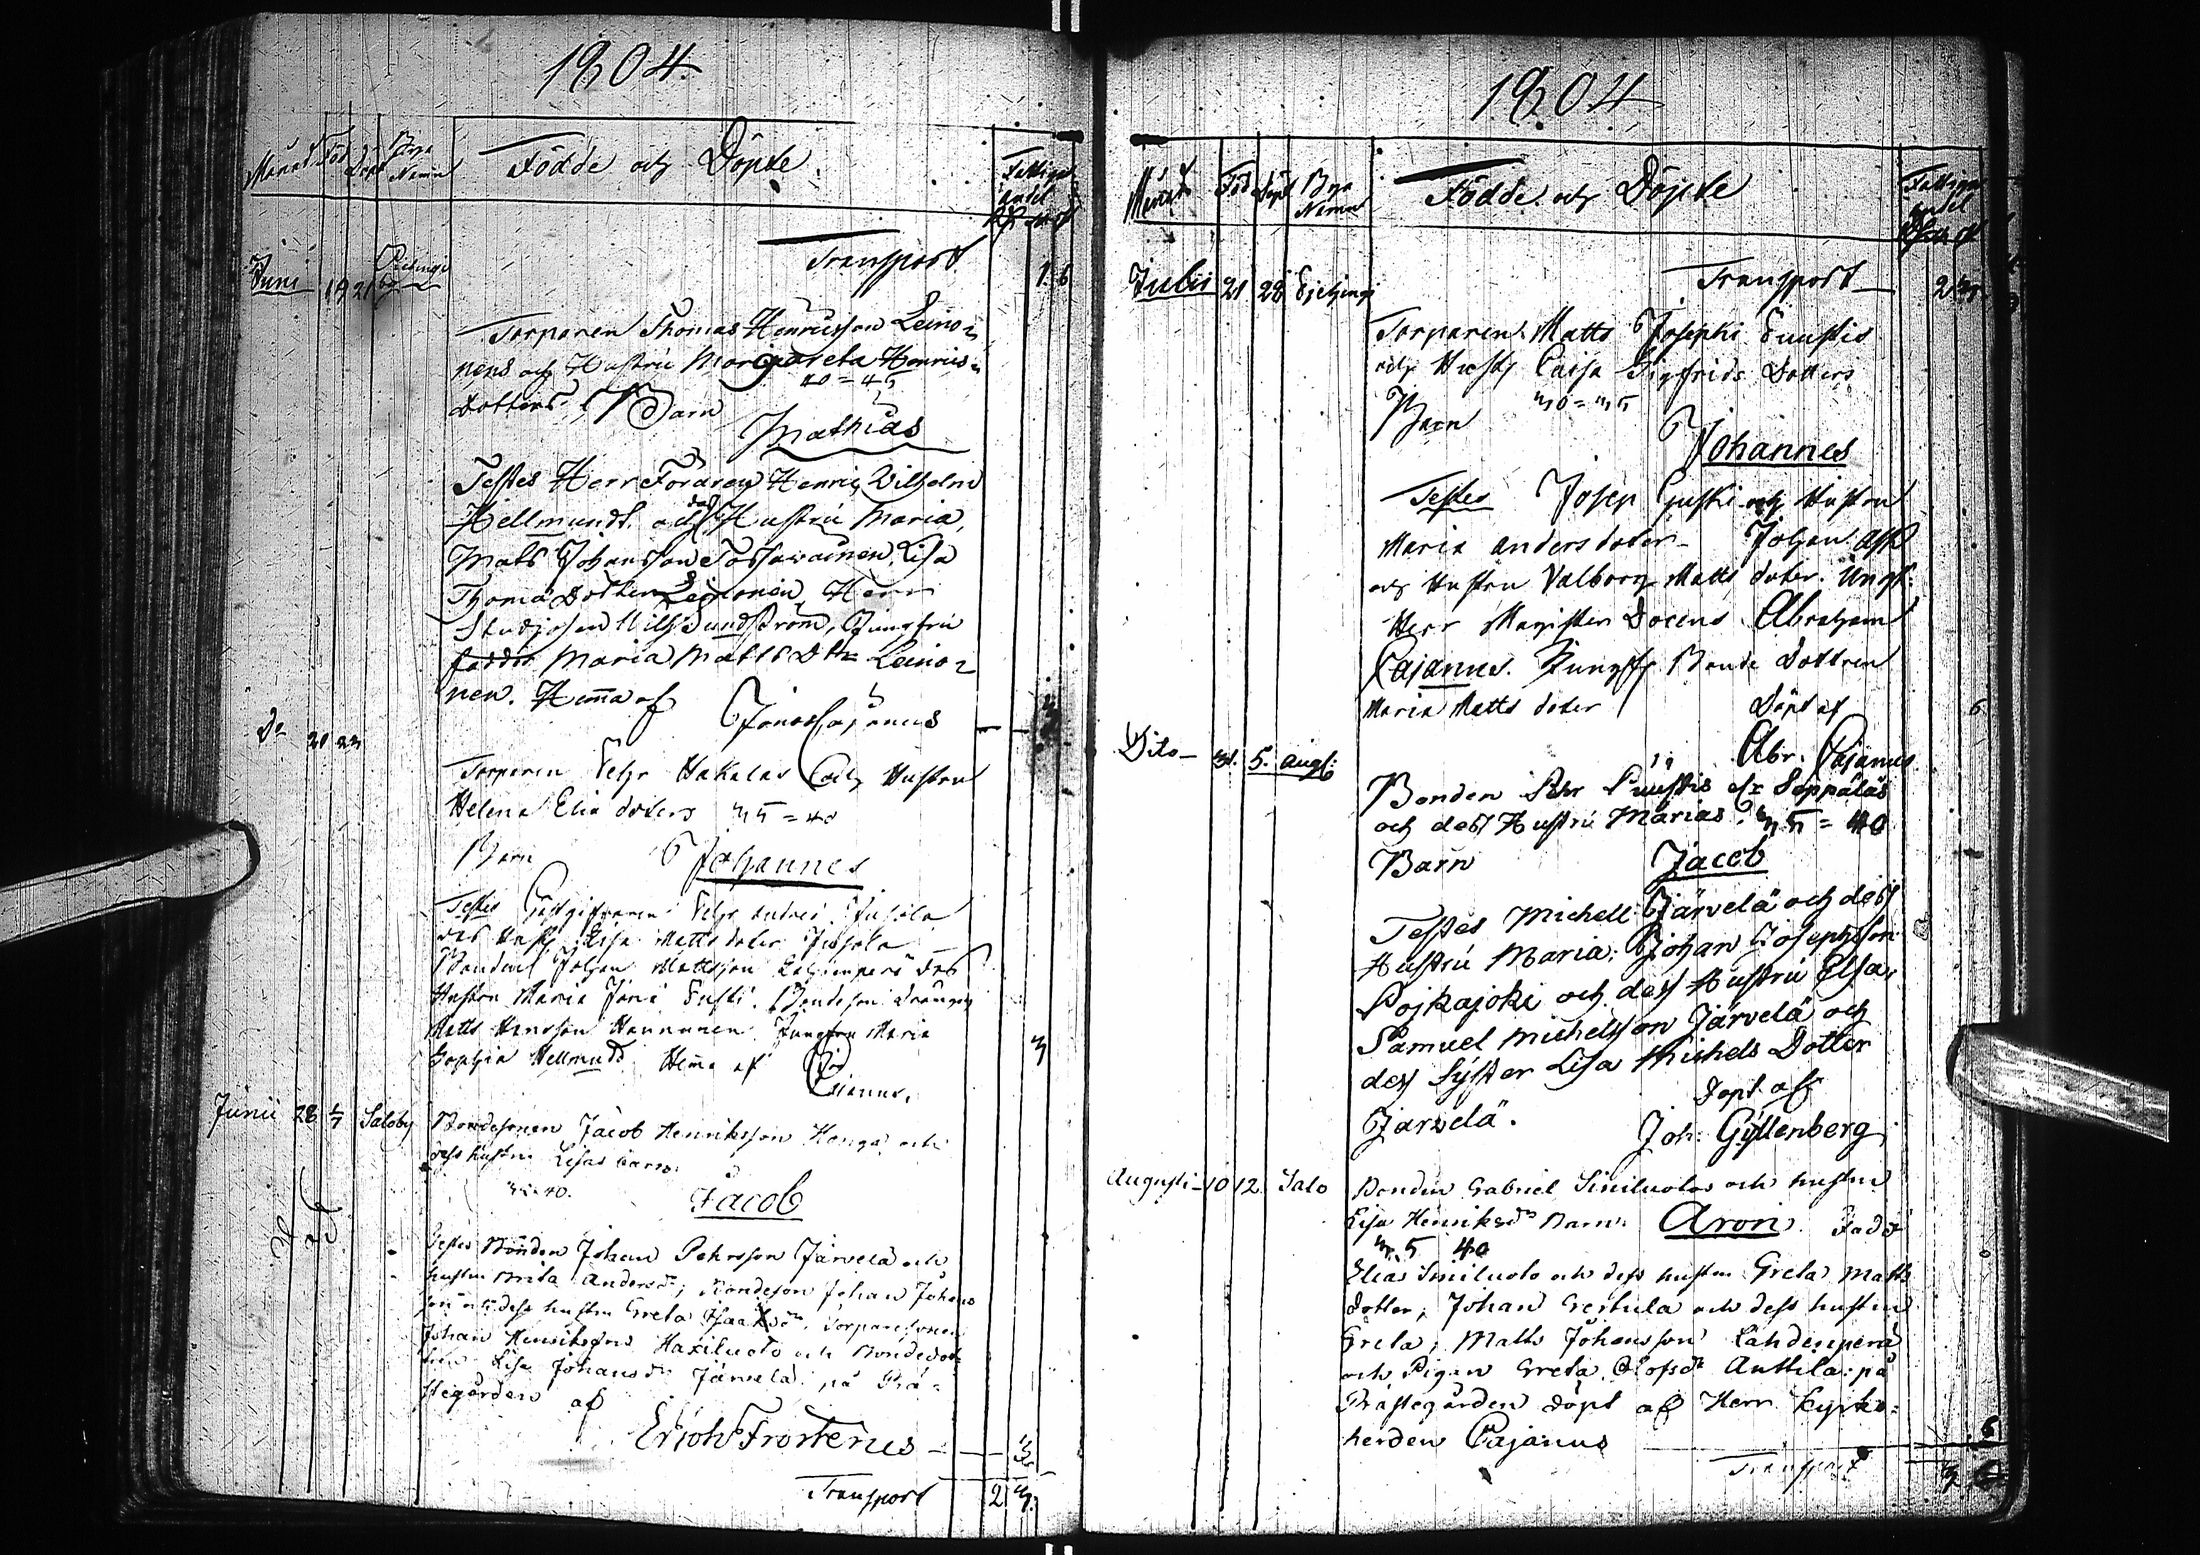 1804.
Månad Föd Döpt Bya Namn
Födde och Döpte
Fattigas andel
Transport 1. 6
Juni 19 21
Torparen Thomas Henricsson Leino=
nens och Hustru Margareta Henrics=
dotters Barn 40=45
Mathias
Testes Herr Forarey Henric Wilhelm
Hellmundt och dess Hustru Maria,
Mats Johansson Tossavainen, Lisa
Thoma Dotter Leinonen, Herr
Studiosen Wilh Sundström, Jungfru
faddr Maria Matts Dtr Leino=
nen. Hema af Jonas Cajanus
Do 21 23
Torparen Pehr Hakalas och Hustru
Helena Elia doters 35=40
Barn Johannes
Testes Gästgifvaren Pehr Jussila
des Hust Lisa Matts doter Jussila
Bonden Johan Mattsson Lahdenperä des
Hustru Maria Bondeson Drängen
Matts Hansson Hannunen Jungfru Maria
Sophia Hellmundt Hema af
Cajanus.
Junii 28 1/7 Saloby
Bondesonen Jacob Henriksson Honga och
dess hustru Lisas barn
35=40.
Jacob
Testes Bonden Johan Pehrsson Järvelä och
hustru Brita Andersdr; Bondeson Johan Johans
son och dess hustru Greta Isaksdr. Torparesonen
Johan Henriksson Haxiluoto och Bondedot=
tren Lisa Johansdr Järvelä, på Prä=
stegården af
Erich Frosterus — 3
Transport 2 3.
1804
Månad Föd Döpt Bya Namn
Födde och Döpte
Fattigas andel
Transport
Julii 21 28
Torparen Matts Josephs Puustis
och Hust Caisa Sigfrids Dotters
Barn 30=35
Johannes
Testes Josep Puusti och Hustru
Maria Anders doter — Johan Asp
och Hustru Valborg Matts doter. Ungk:
Herr Magister Docens Abraham
Cajanus. Jungfr Bonde Dottren
Maria Matts doter Döpt af 6
Abr. Cajanus
Dito — 31. 5. Augs:
Bonden Pehr Puustis Seppäläs
och dess Hustru Marias. 35=40
Barn Jacob
Testes Michell Järvelä och dess
Hustru Maria; Johan Josephsson
Pojkajoki och dess Hustru Elsa;
Samuel Michelsson Järvelä och
dess Syster Lisa Michels Dotter
Järvelä. Döpt af
Joh: Gyllenberg
Augusti — 10 12 Salo
Bonden Gabriel Siniluotos och hustru
Lisa Henriksdr Barn Aron. Fadd
35 40
Elias Siniluoto och dess hustru Greta Matts
dotter; Johan Gertula och dess hustru
Greta; Matts Johansson Lahdenperä
och Pigan Greta Olofsdr Anttila: på
Prästegården döpt af Herr Kyrko=
herden Cajanus 6
Transport